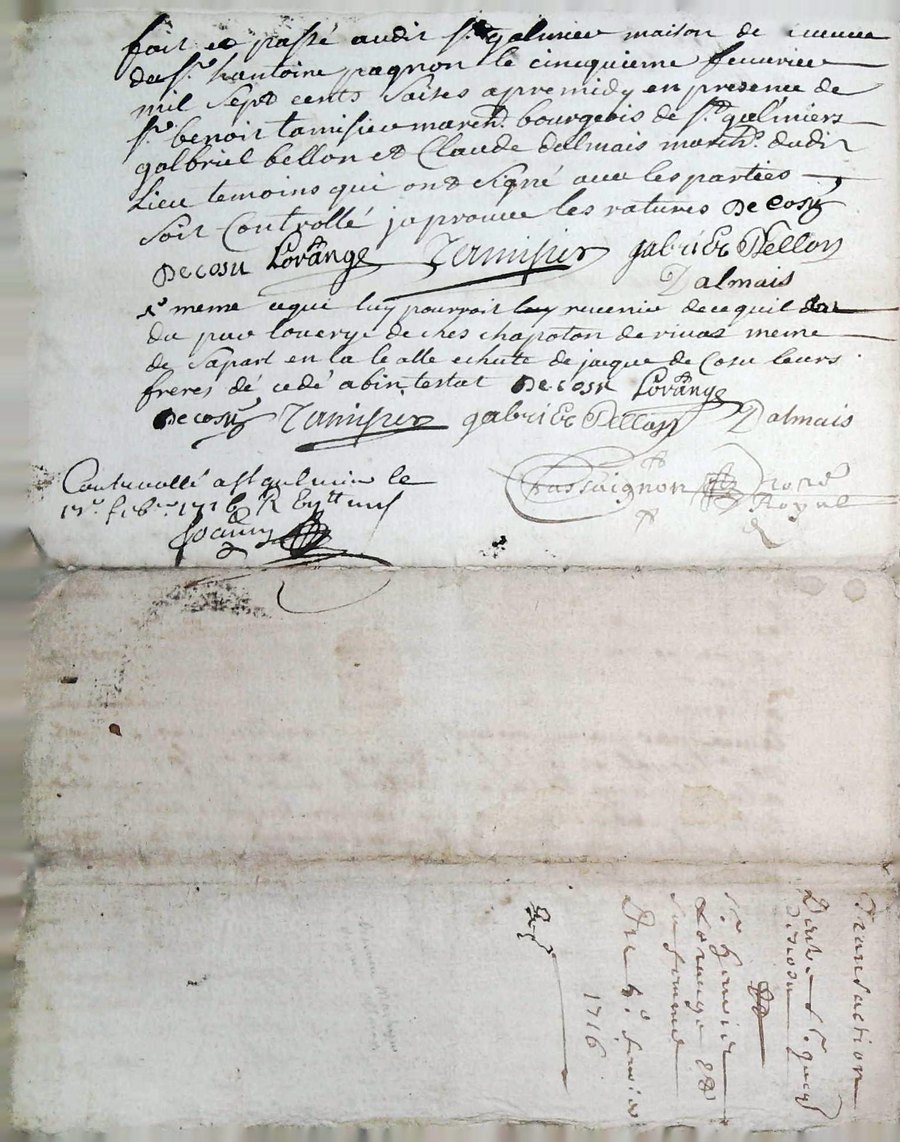 fait et passé audit St galmier maison de
du Sr. hantoine pagnon le cincquieme feuurier
mil sept cents saises apremidy en presence de
Sr. benoit tamisieu march. bourgeois de St galmiers
galbriel bellon et Claude dalmais march. dudit
Lieu temoins qui ont signé auec les parties
soit Controllé japrouue les ratures De cosu
De cosu Lorange Tamisier gabriel Bellon
Dalmais
meme ce qui luy pourroit luy reuenir de ce quil
de ches chapoton de riuas meme
de sa part en la echute de jaque de Cosu leurs
freres dé cedé abintestat De cosu Lorange
De cosu Tamisier gabriel Bellon Dalmais
Contrerollé a St galmier le
1716 R
Joanny
Chassaignon
Royal
Transaction
Decosu
Sr.
Lorange et
sa femme
Du 5e. feurier
1716